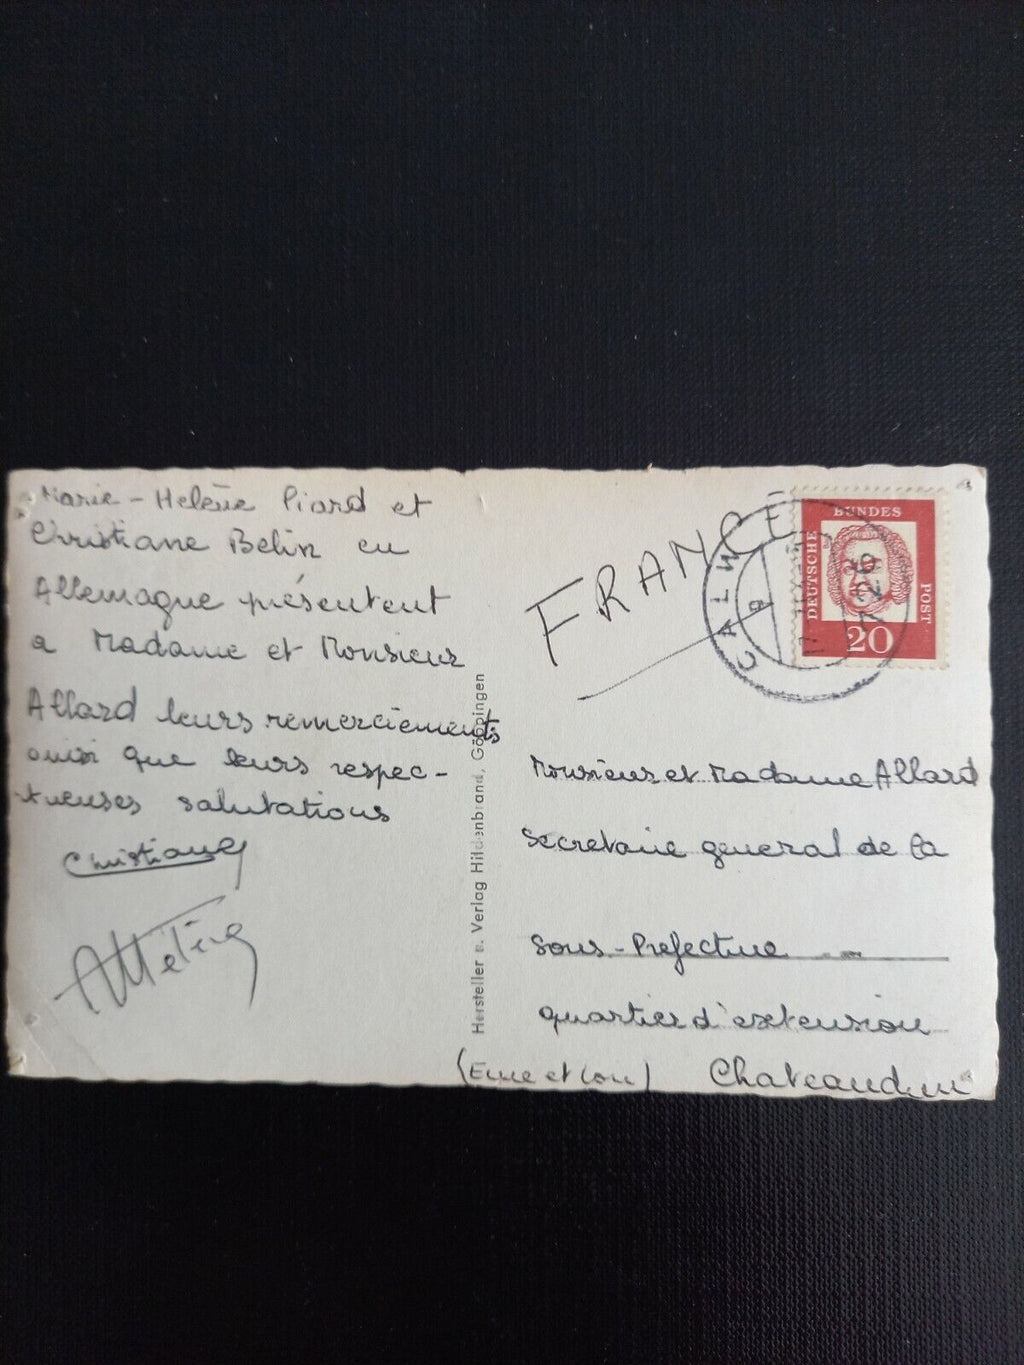 Marie-Helène Piard et
Christiane Belin en
Allemagne présentent
a Madame et Monsieur
Allard leurs remerciements
ainsi que leurs respec-
tueuses salutations
Christiane
Hersteller u. Verlag Hildenbrand, Göppingen
FRANCE
CALW
DEUTSCHE
BUNDES
POST
20
726
Monsieur et Madame Allard
Secretaire general de la
Sous-Prefecture
quartier d'extension
(Eure et Loir) Chateaudun